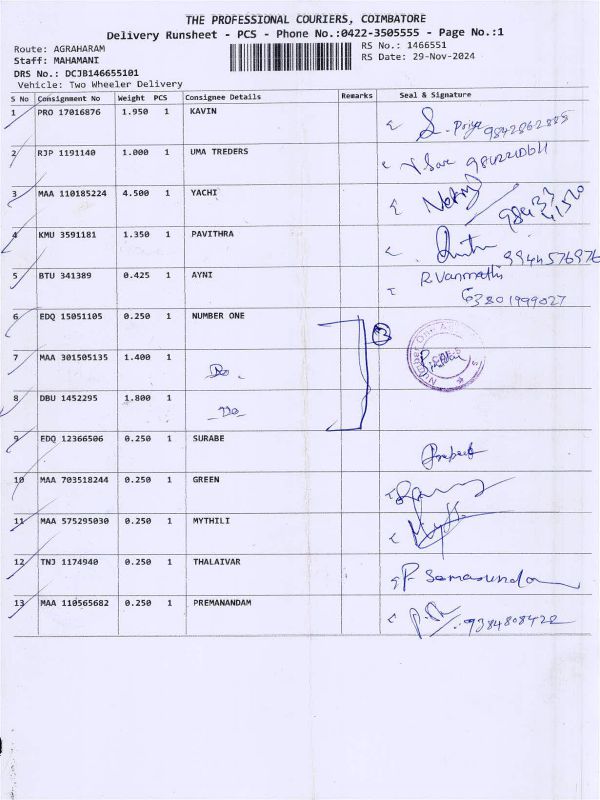 THE PROFESSIONAL COURIERS, COIMBATORE
Delivery Runsheet - PCS - Phone No.:0422-3505555 - Page No.:1
Route: AGRAHARAM RS No.: 1466551
Staff: MAHAMANI RS Date: 29-Nov-2024
DRS No.: DCJB146655101
Vehicle: Two Wheeler Delivery
S No Consignment No Weight PCS Consignee Details Remarks Seal & Signature
1 PRO 17016876 1.950 1 KAVIN
2 RJP 1191140 1.000 1 UMA TREDERS
3 MAA 110185224 4.500 1 YACHI
4 KMU 3591181 1.350 1 PAVITHRA 9944576976
5 BTU 341389 0.425 1 AYNI R Vanmathi
63801999027
6 EDQ 15051105 0.250 1 NUMBER ONE
7 MAA 301505135 1.400 1 Do. 3
8 DBU 1452295 1.800 1 Do
9 EDQ 12366506 0.250 1 SURABE
10 MAA 703518244 0.250 1 GREEN
11 MAA 575295030 0.250 1 MYTHILI
12 TNJ 1174940 0.250 1 THALAIVAR P. Somasundar
13 MAA 110565682 0.250 1 PREMANANDAM 9384808422